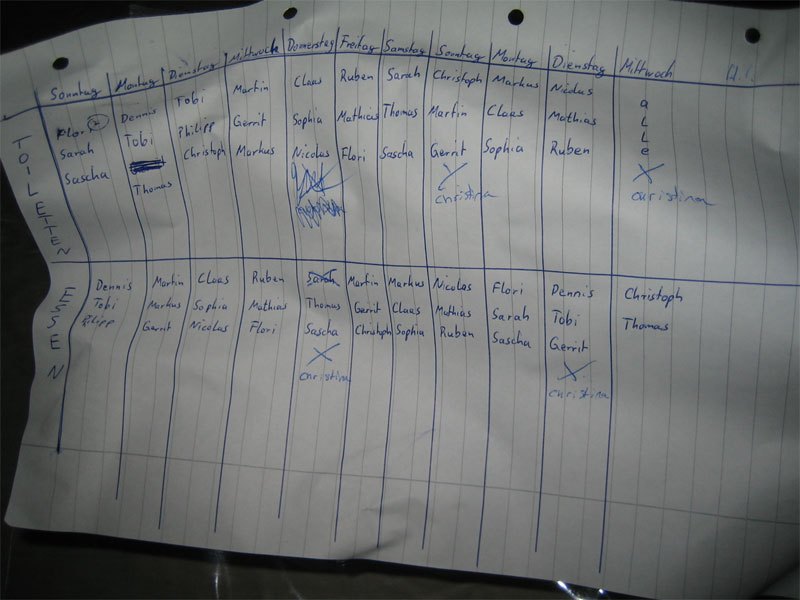 Sonntag Montag Dienstag Mittwoch Donnerstag Freitag Samstag Sonntag Montag Dienstag Mittwoch
TOILETTEN
Flori Dennis Tobi Martin Claas Ruben Sarah Christoph Markus Nicolas a
Sarah Tobi Philipp Gerrit Sophia Mathias Thomas Martin Claas Mathias L
Sascha Christoph Markus Nicolas Flori Sascha Gerrit Sophia Ruben L
Thomas e
X X
christina christina
ESSEN
Dennis Martin Claas Ruben Sarah Martin Markus Nicolas Flori Dennis Christoph
Tobi Markus Sophia Mathias Thomas Gerrit Claas Mathias Sarah Tobi Thomas
Philipp Gerrit Nicolas Flori Sascha Christoph Sophia Ruben Sascha Gerrit
X X
christina christina